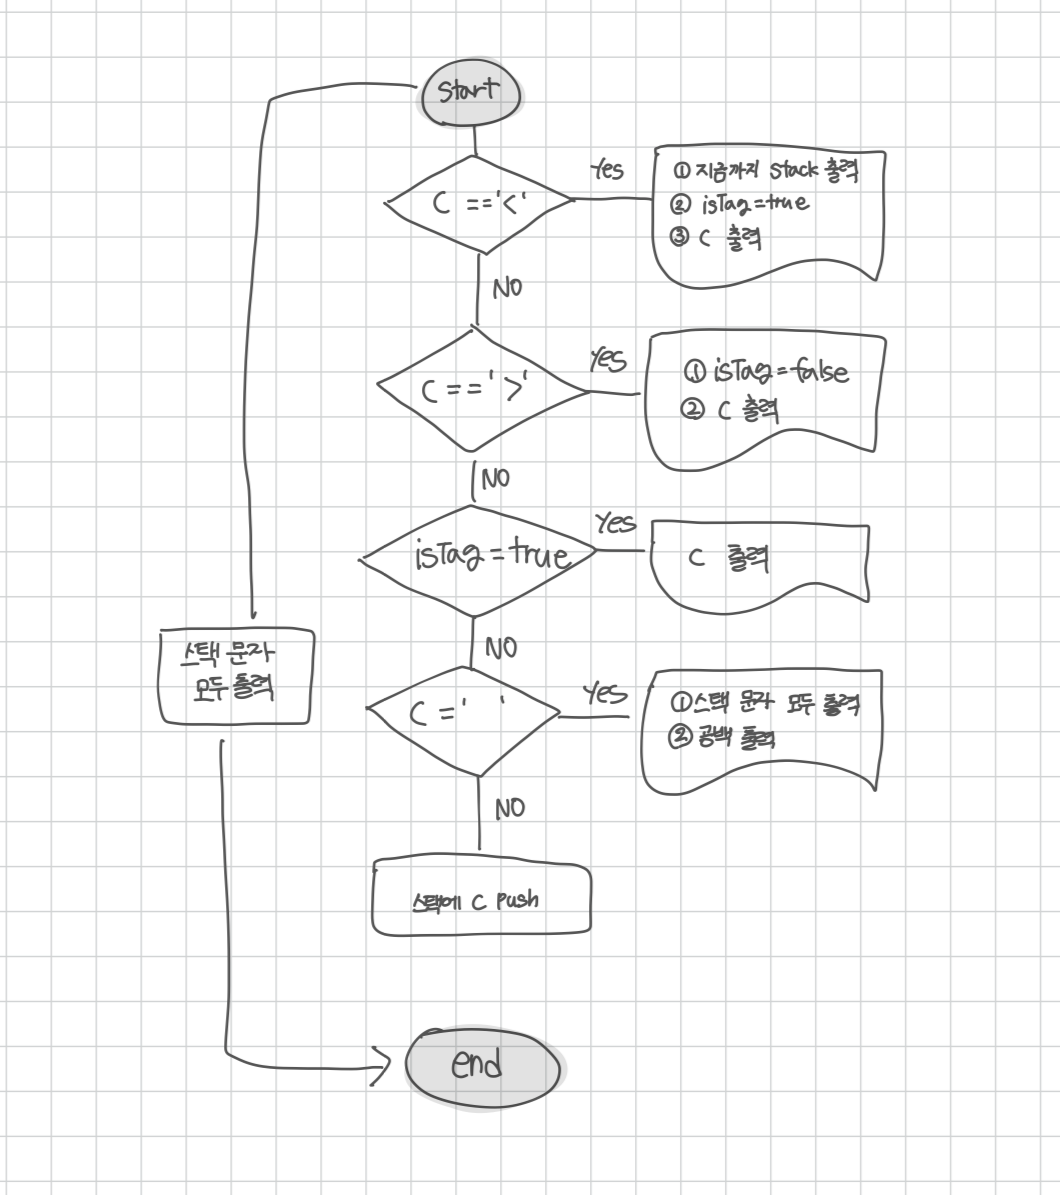 start
C =='<'
Yes
① 지금까지 stack 출력
② isTag=true
③ C 출력
NO
C =='>'
Yes
① isTag=false
② C 출력
NO
isTag=true
Yes
C 출력
NO
스택 문자
모두 출력
C =' '
Yes
①스택 문자 모두 출력
② 공백 출력
NO
스택에 C push
end